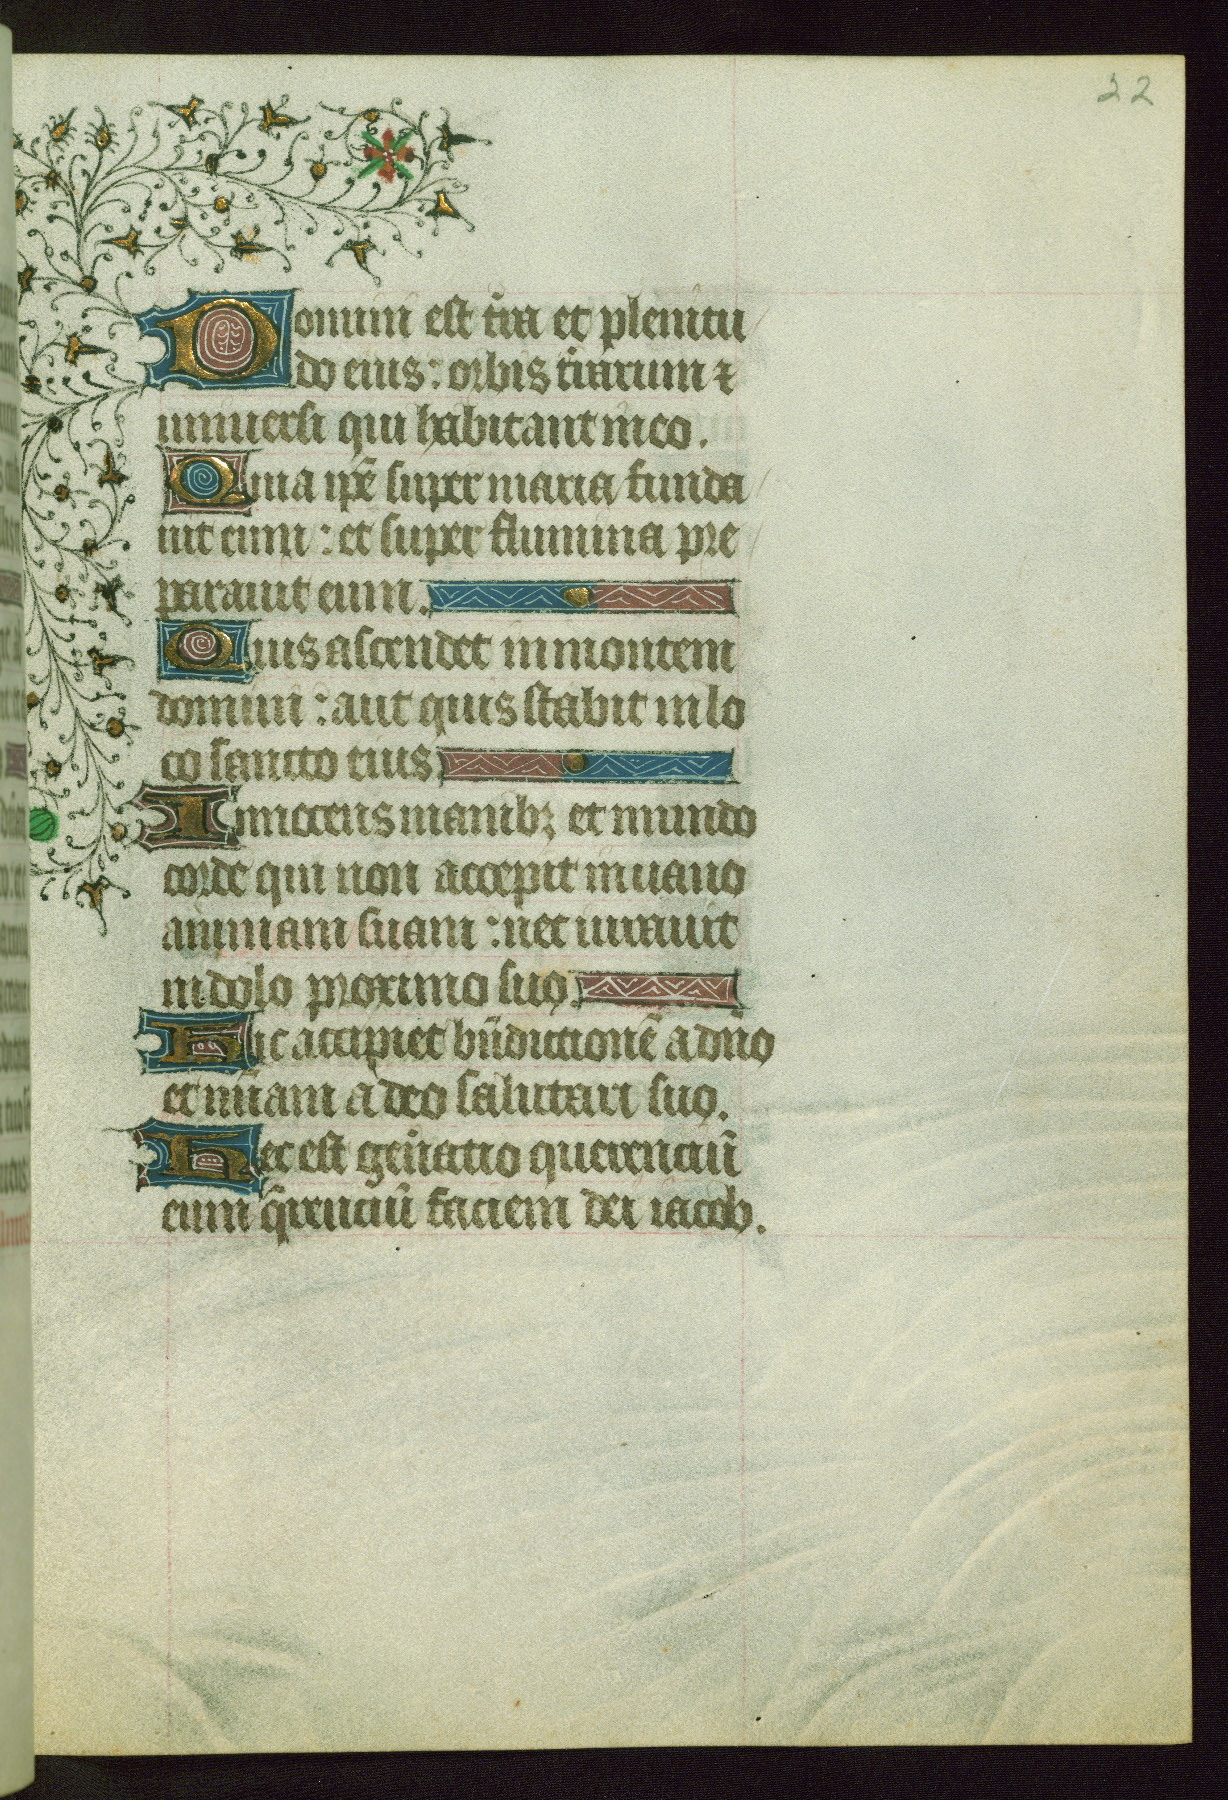 22
Domini est t̄ra et plenitu
do eius : orbis t̄rarum ⁊
uniuersi qui habitant in eo .
Quia ip̄e super maria funda
uit eum : et super flumina pre
parauit eum .
Quis ascendet in montem
domini : aut quis stabit in lo
co sancto eius .
Innocens manibꝫ et mundo
corde qui non accepit in uano
animam suam : nec iurauit
in dolo proximo suo .
Hic accipiet bn̄dictionē a dn̄o
et mīam a deo salutari suo .
Hec est gen̄atio querenciū
eum q̄renciū faciem dei iacob .